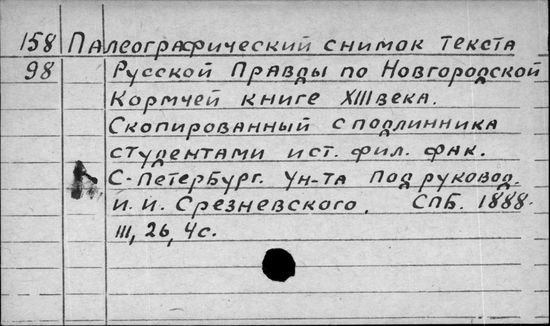 158 Палеографический снимок текста
98 Русской Правды по Новгородской
Кормчей книге XIII века.
Скопированный с подлинника
студентами ист. фил. фак.
С-Петербург. Ун-та под руковод.
И. И. Срезневского. СПБ. 1888.
III, 26, 4 с.